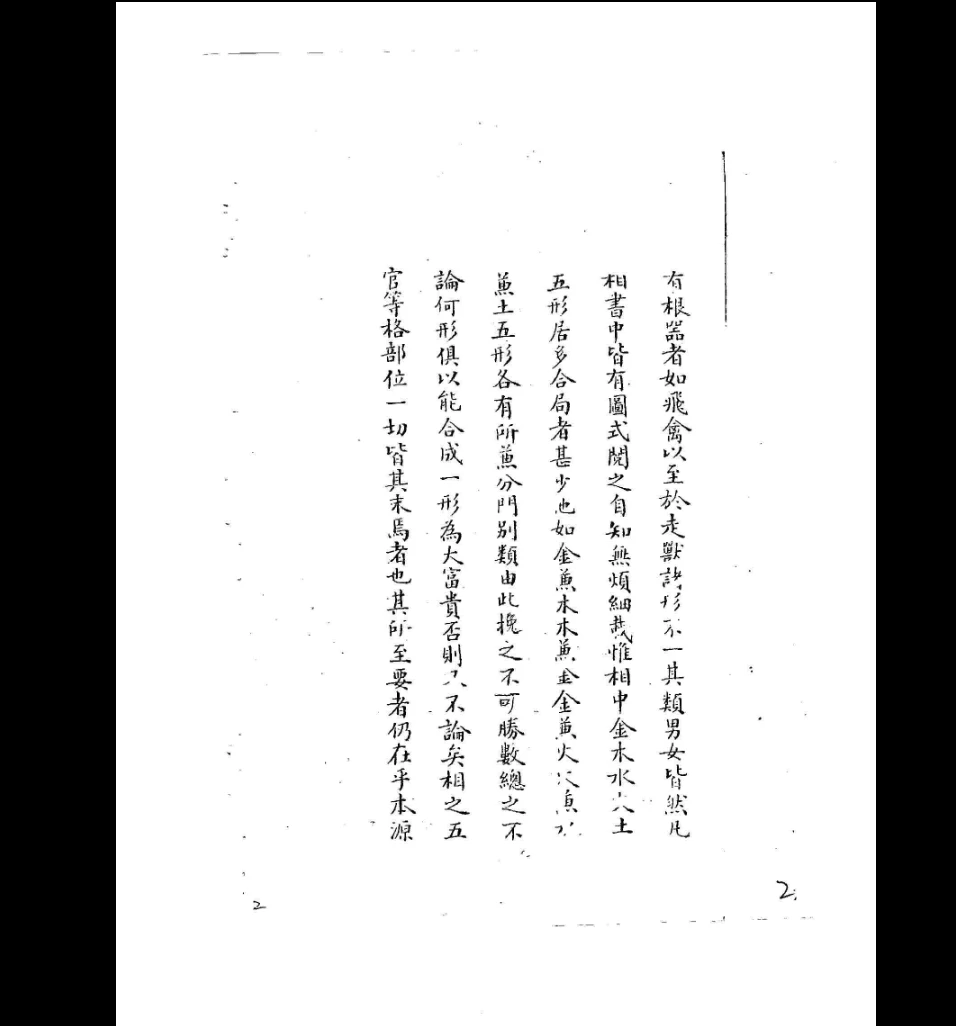 有根器者如飛禽以至於走獸諸形不一其類男女皆然凡
相書中皆有圖式閱之自知無煩細哉惟相中金木水火土
五形居多合局者甚少也如金蒹木木蒹金金蒹火火蒹水
蒹土五形各有所蒹分門別類由此推之不可勝數總之不
論何形俱以能合成一形為大富貴否則又不論矣相之五
官等格部位一切皆其末焉者也其所至要者仍在乎本源
2
2